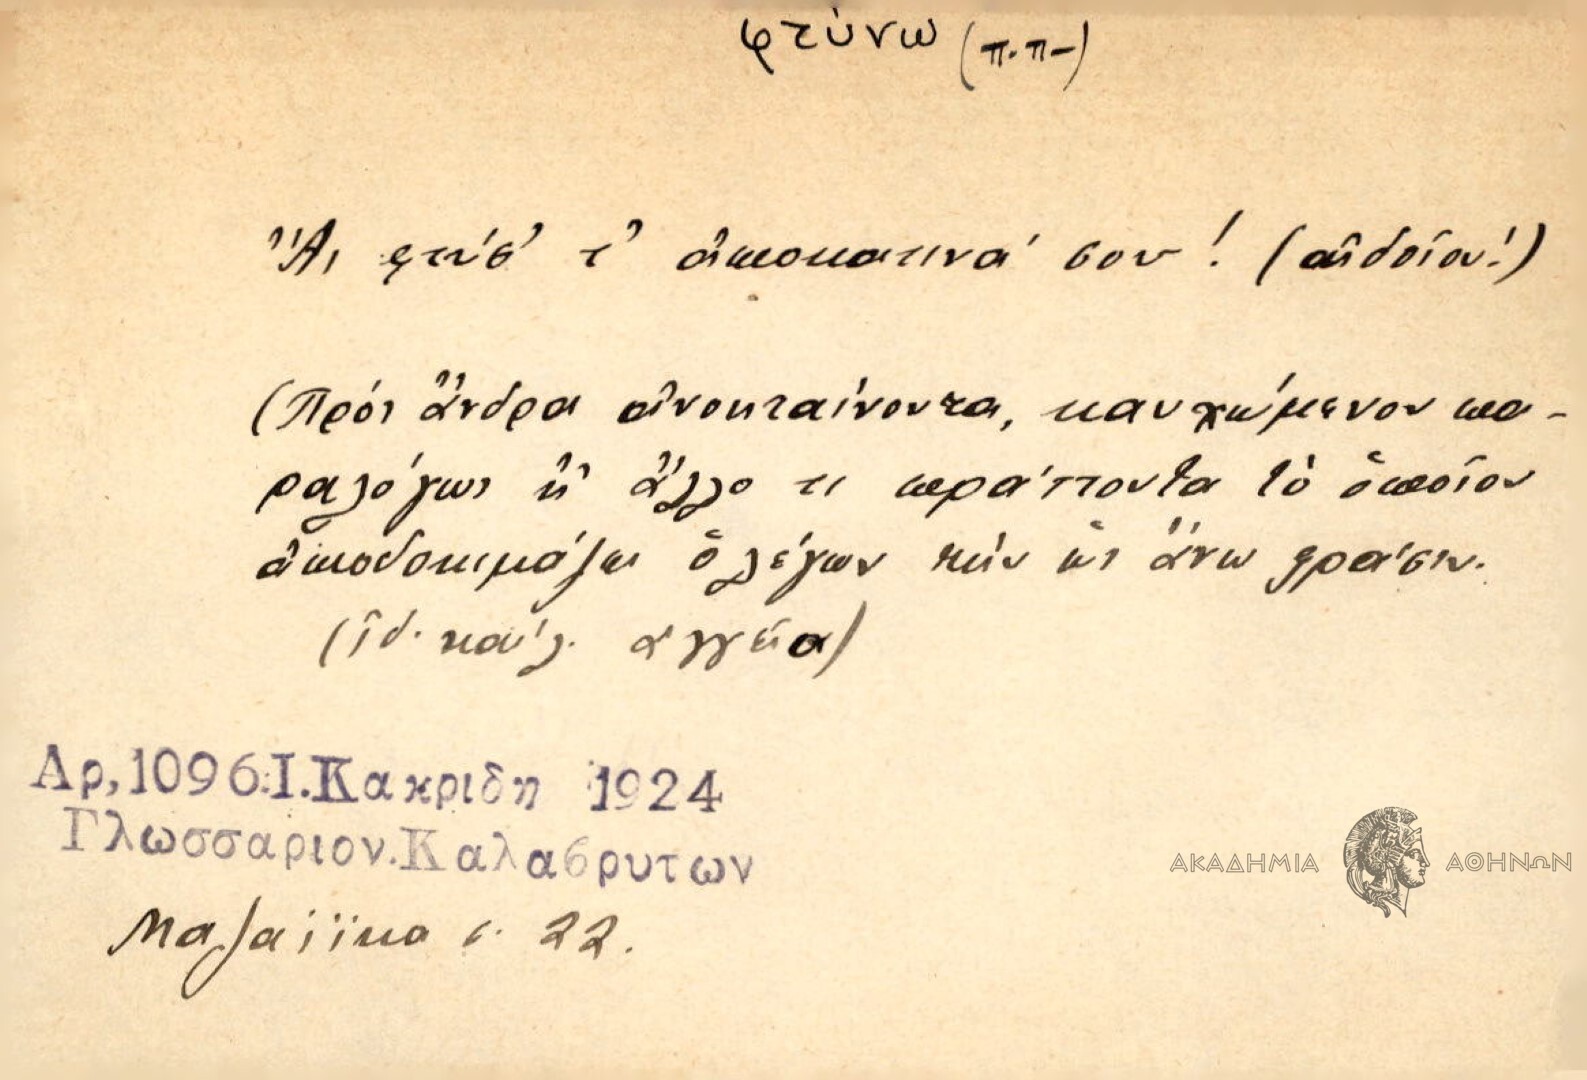 φτύνω (π.π-)
Ἄι φτύσ' τ' ἀποκατινά σου! (αἰδοῖον!)
(Πρὸς ἄνδρα οἰνοκταίνοντα, καυχώμενον πα-
ραλόγως ἢ ἄλλο τι πράττοντα τὸ ὁποῖον
ἀποδοκιμάζει ὁ λέγων τὴν ὡς ἄνω φράσιν.
(ἰδ. καὶ λ. ἀγγειά)
Αρ,1096.Ι.Κακριδη 1924
Γλωσσαριον.Καλαβρυτων
Μαζαίϊκα σ. 22.
ΑΚΑΔΗΜΙΑ ΑΘΗΝΩΝ